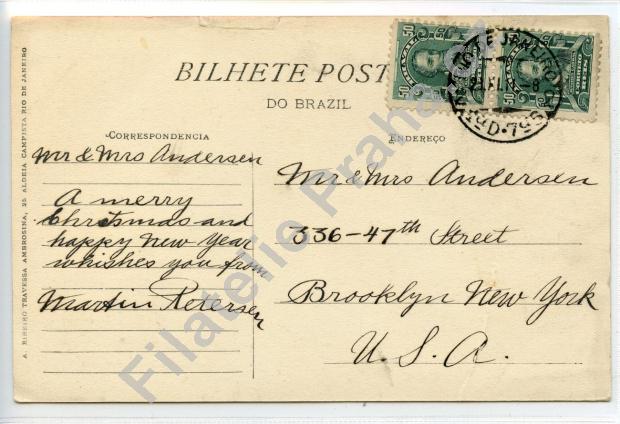 BILHETE POST
DO BRAZIL
CORRESPONDENCIA
ENDEREÇO
Mr & Mrs Andersen
A merry
Christmas and
happy New Year
whishes you from
Martin Petersen
Mr & Mrs Andersen
336-47th Street
Brooklyn New York
U. S. A.
A. RIBEIRO TRAVESSA AMBROSINA, 25 ALDEIA CAMPISTA RIO DE JANEIRO
50
50
50
50
Filatelie Praha